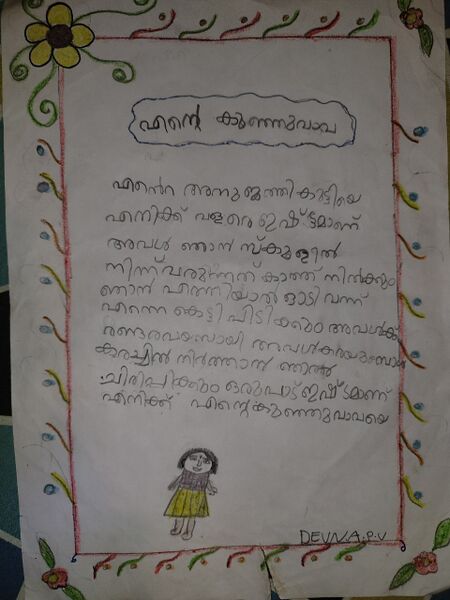 എന്റെ കുഞ്ഞുവാവ
എന്റെ അനുജത്തികുട്ടിയെ
എനിക്ക് വളരെ ഇഷ്ട്ടമാണ്
അവൾ ഞാൻ സ്കൂളിൽ
നിന്ന് വരുന്നത് കാത്ത് നിൽക്കും
ഞാൻ എത്തിയാൽ ഓടി വന്ന്
എന്നെ കെട്ടി പിടിക്കും അവൾക്ക്
രണ്ടരവയസായി അവൾകരയുമ്പോൾ
കരച്ചിൽ നിർത്താൻ ഞാൻ
ചിരിപ്പിക്കും ഒരുപാട് ഇഷ്ടമാണ്
എനിക്ക് എന്റെ കുഞ്ഞുവാവയെ
DEVNA.P.V